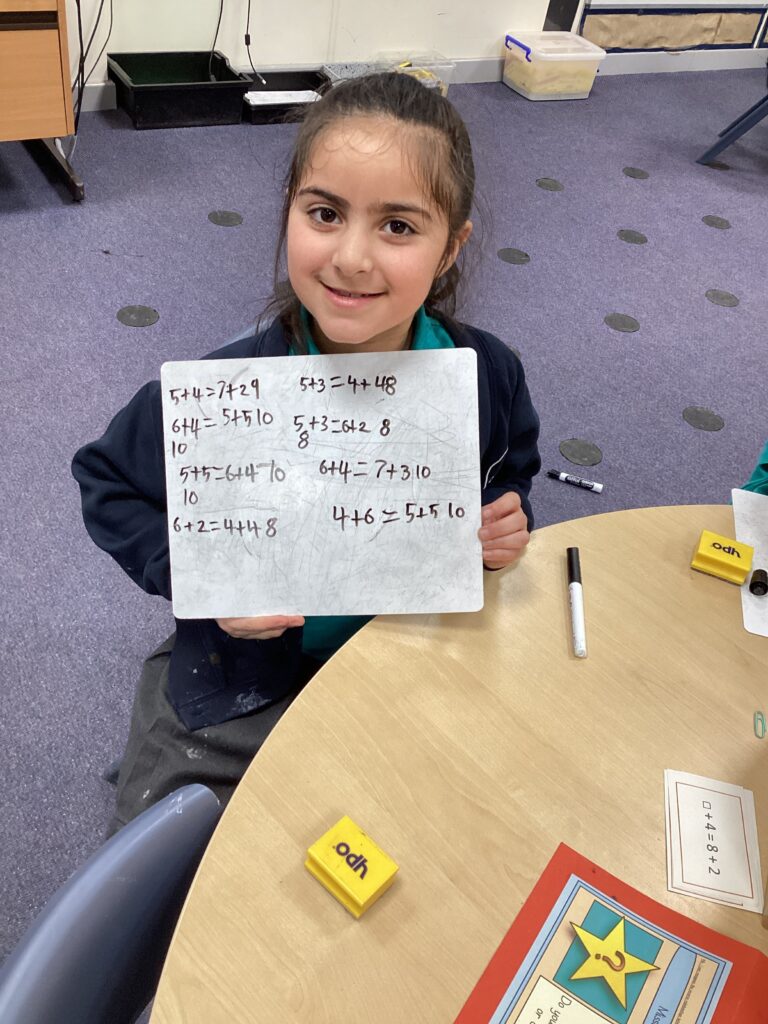 5+4=7+29
5+3=4+48
6+4=5+5 10
10
5+3=6+2 8
8
5+5=6+4 10
10
6+4=7+3 10
6+2=4+4 8
4+6=5+5 10
ypo.
ypo.
□+4=8+2
?
Do you
or